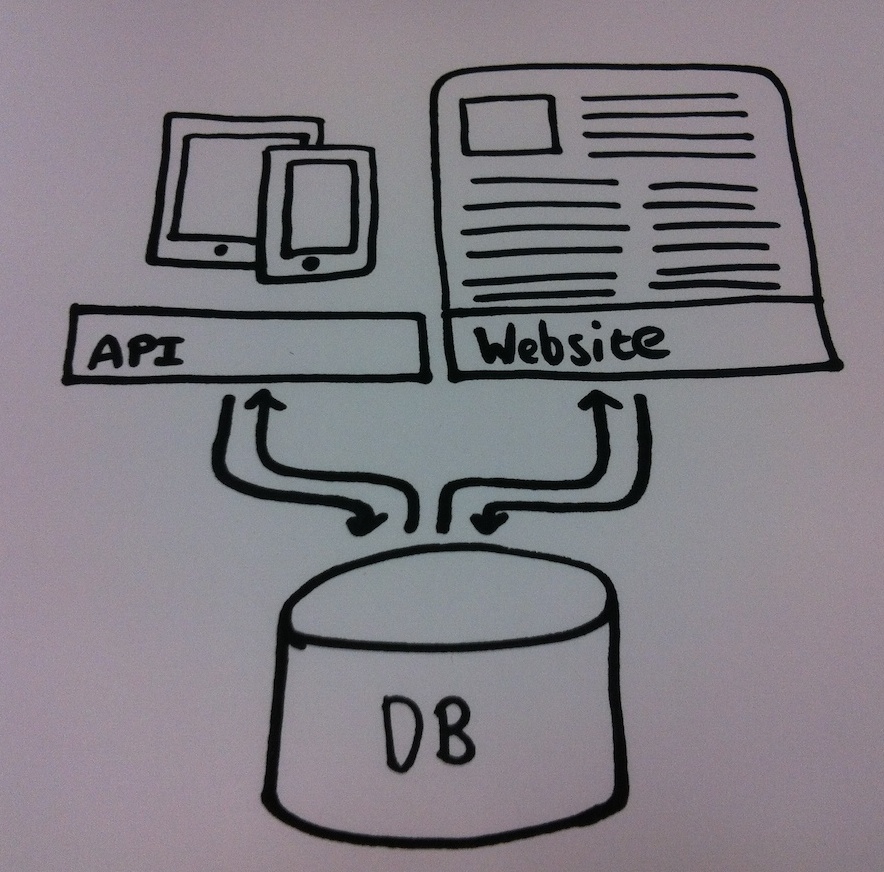 API
Website
DB